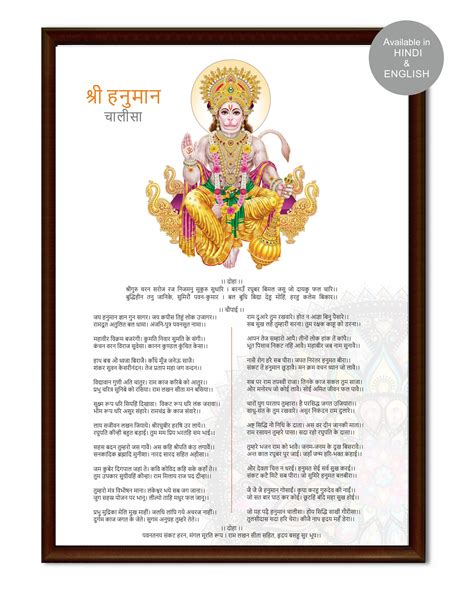 Available in
HINDI
&
ENGLISH
श्री हनुमान
चालीसा
।। दोहा ।।
श्रीगुरु चरन सरोज रज निजमनु मुकुरु सुधारि । बरनउँ रघुबर बिमल जसु जो दायकु फल चारि ।।
बुद्धिहीन तनु जानिके, सुमिरौं पवन-कुमार । बल बुधि बिद्या देहु मोहिं, हरहु कलेस बिकार ।।
।। चौपाई ।।
जय हनुमान ज्ञान गुन सागर। जय कपीस तिहुं लोक उजागर।।
रामदूत अतुलित बल धामा। अंजनि-पुत्र पवनसुत नामा।।
महाबीर विक्रम बजरंगी। कुमति निवार सुमति के संगी।।
कंचन बरन विराज सुबेसा। कानन कुण्डल कुंचित केसा।।
हाथ बज्र औ ध्वजा बिराजै। काँधे मूँज जनेऊ साजै।
शंकर सुवन केसरीनंदन। तेज प्रताप महा जग वन्दन।।
विद्यावान गुणी अति चातुर। राम काज करिबे को आतुर।।
प्रभु चरित्र सुनिबे को रसिया। राम लखन सीता मन बसिया।।
सूक्ष्म रूप धरि सियहिं दिखावा। विकट रूप धरि लंक जरावा।
भीम रूप धरि असुर संहारे। रामचंद्र के काज संवारे।।
लाय सजीवन लखन जियाये। श्रीरघुबीर हरषि उर लाये।।
रघुपति कीन्ही बहुत बड़ाई। तुम मम प्रिय भरतहि सम भाई।।
सहस बदन तुम्हरो जस गावैं। अस कहि श्रीपति कंठ लगावैं।
सनकादिक ब्रह्मादि मुनीसा। नारद सारद सहित अहीसा।।
जम कुबेर दिगपाल जहां ते। कवि कोविद कहि सके कहाँ ते।।
तुम उपकार सुग्रीवहिं कीन्हा। राम मिलाय राज पद दीन्हा।।
तुम्हरो मंत्र विभीषन माना। लंकेश्वर भये सब जग जाना।।
जुग सहस्र योजन पर भानू। लील्यो ताहि मधुर फल जानू।।
प्रभु मुद्रिका मेलि मुख माहीं। जलधि लांघि गये अचरज नाहीं।
दुर्गम काज जगत के जेते। सुगम अनुग्रह तुम्हरे तेते।।
राम दुआरे तुम रखवारे। होत न आज्ञा बिनु पैसारे।।
सब सुख लहै तुम्हारी सरना। तुम रक्षक काहू को डरना।
आपन तेज सम्हारो आपै। तीनों लोक हांक तें कांपै।
भूत पिशाच निकट नहिं आवै। महाबीर जब नाम सुनावै।।
नासै रोग हरै सब पीरा। जपत निरंतर हनुमत बीरा।।
संकट तें हनुमान छुड़ावै। मन क्रम वचन ध्यान जो लावै।।
सब पर राम तपस्वी राजा। तिन के काज सकल तुम साजा।।
और मनोरथ जो कोई लावै। सोई अमित जीवन फल पावै।।
चारों युग परताप तुम्हारा। है परसिद्ध जगत उजियारा।
साधु-संत के तुम रखवारे। असुर निकंदन राम दुलारे।
अष्ट सिद्धि नौ निधि के दाता। अस बर दीन जानकी माता।।
राम रसायन तुम्हरे पासा। सदा रहो रघुपति के दासा।
तुम्हरे भजन राम को भावै। जनम-जनम के दुख बिसरावै।
अन्त काल रघुबर पुर जाई। जहाँ जन्म हरि-भक्त कहाई।
और देवता चित न धरई। हनुमत सेई सर्व सुख करई।
संकट कटै मिटै सब पीरा। जो सुमिरै हनुमत बलबीरा।।
जै जै जै हनुमान गोसाईं। कृपा करहु गुरुदेव की नाईं।
जो सत बार पाठ कर कोई। छूटहि बंदि महा सुख होई।।
जो यह पढ़ै हनुमान चालीसा। होय सिद्धि साखी गौरीसा।।
तुलसीदास सदा हरि चेरा। कीजै नाथ हृदय महँ डेरा।।
।। दोहा ।।
पवनतनय संकट हरन, मंगल मूरति रूप । राम लखन सीता सहित, हृदय बसहु सुर भूप।।